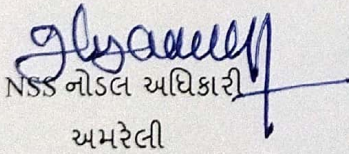 NSS નોડલ અધિકારી
અમરેલી